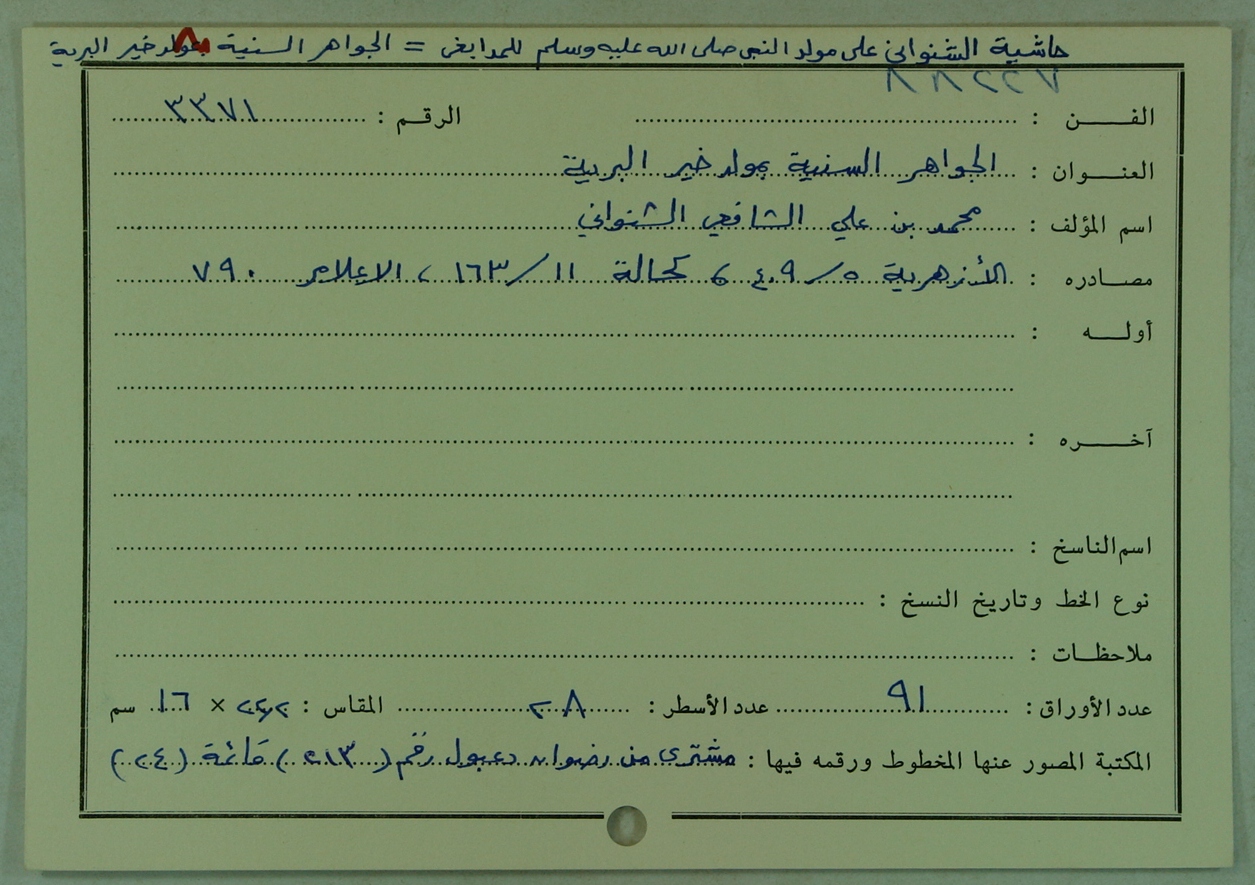 حاشية الشنواني على مولد النبي صلى الله عليه وسلم للمدابغي = الجواهر السنية بمولد خير البرية
٨٨٢٢٧
الفن : الرقم : ٣٣٧١
العنوان : الجواهر السنية بمولد خير البرية
اسم المؤلف : محمد بن علي الشافعي الشنواني
مصادره : الأزهرية ٥/٤٠٩ ، كحالة ١١/١٦٣ ، الاعلام ٧٩٠
أوله :
آخره :
اسم الناسخ :
نوع الخط وتاريخ النسخ :
ملاحظات :
عدد الأوراق : ٩١ عدد الأسطر : ٢٨ المقاس : × ١٦ سم
المكتبة المصور عنها المخطوط ورقمه فيها : مشترى من رضوان دعبول رقم ( ) قائمة (٢٤)